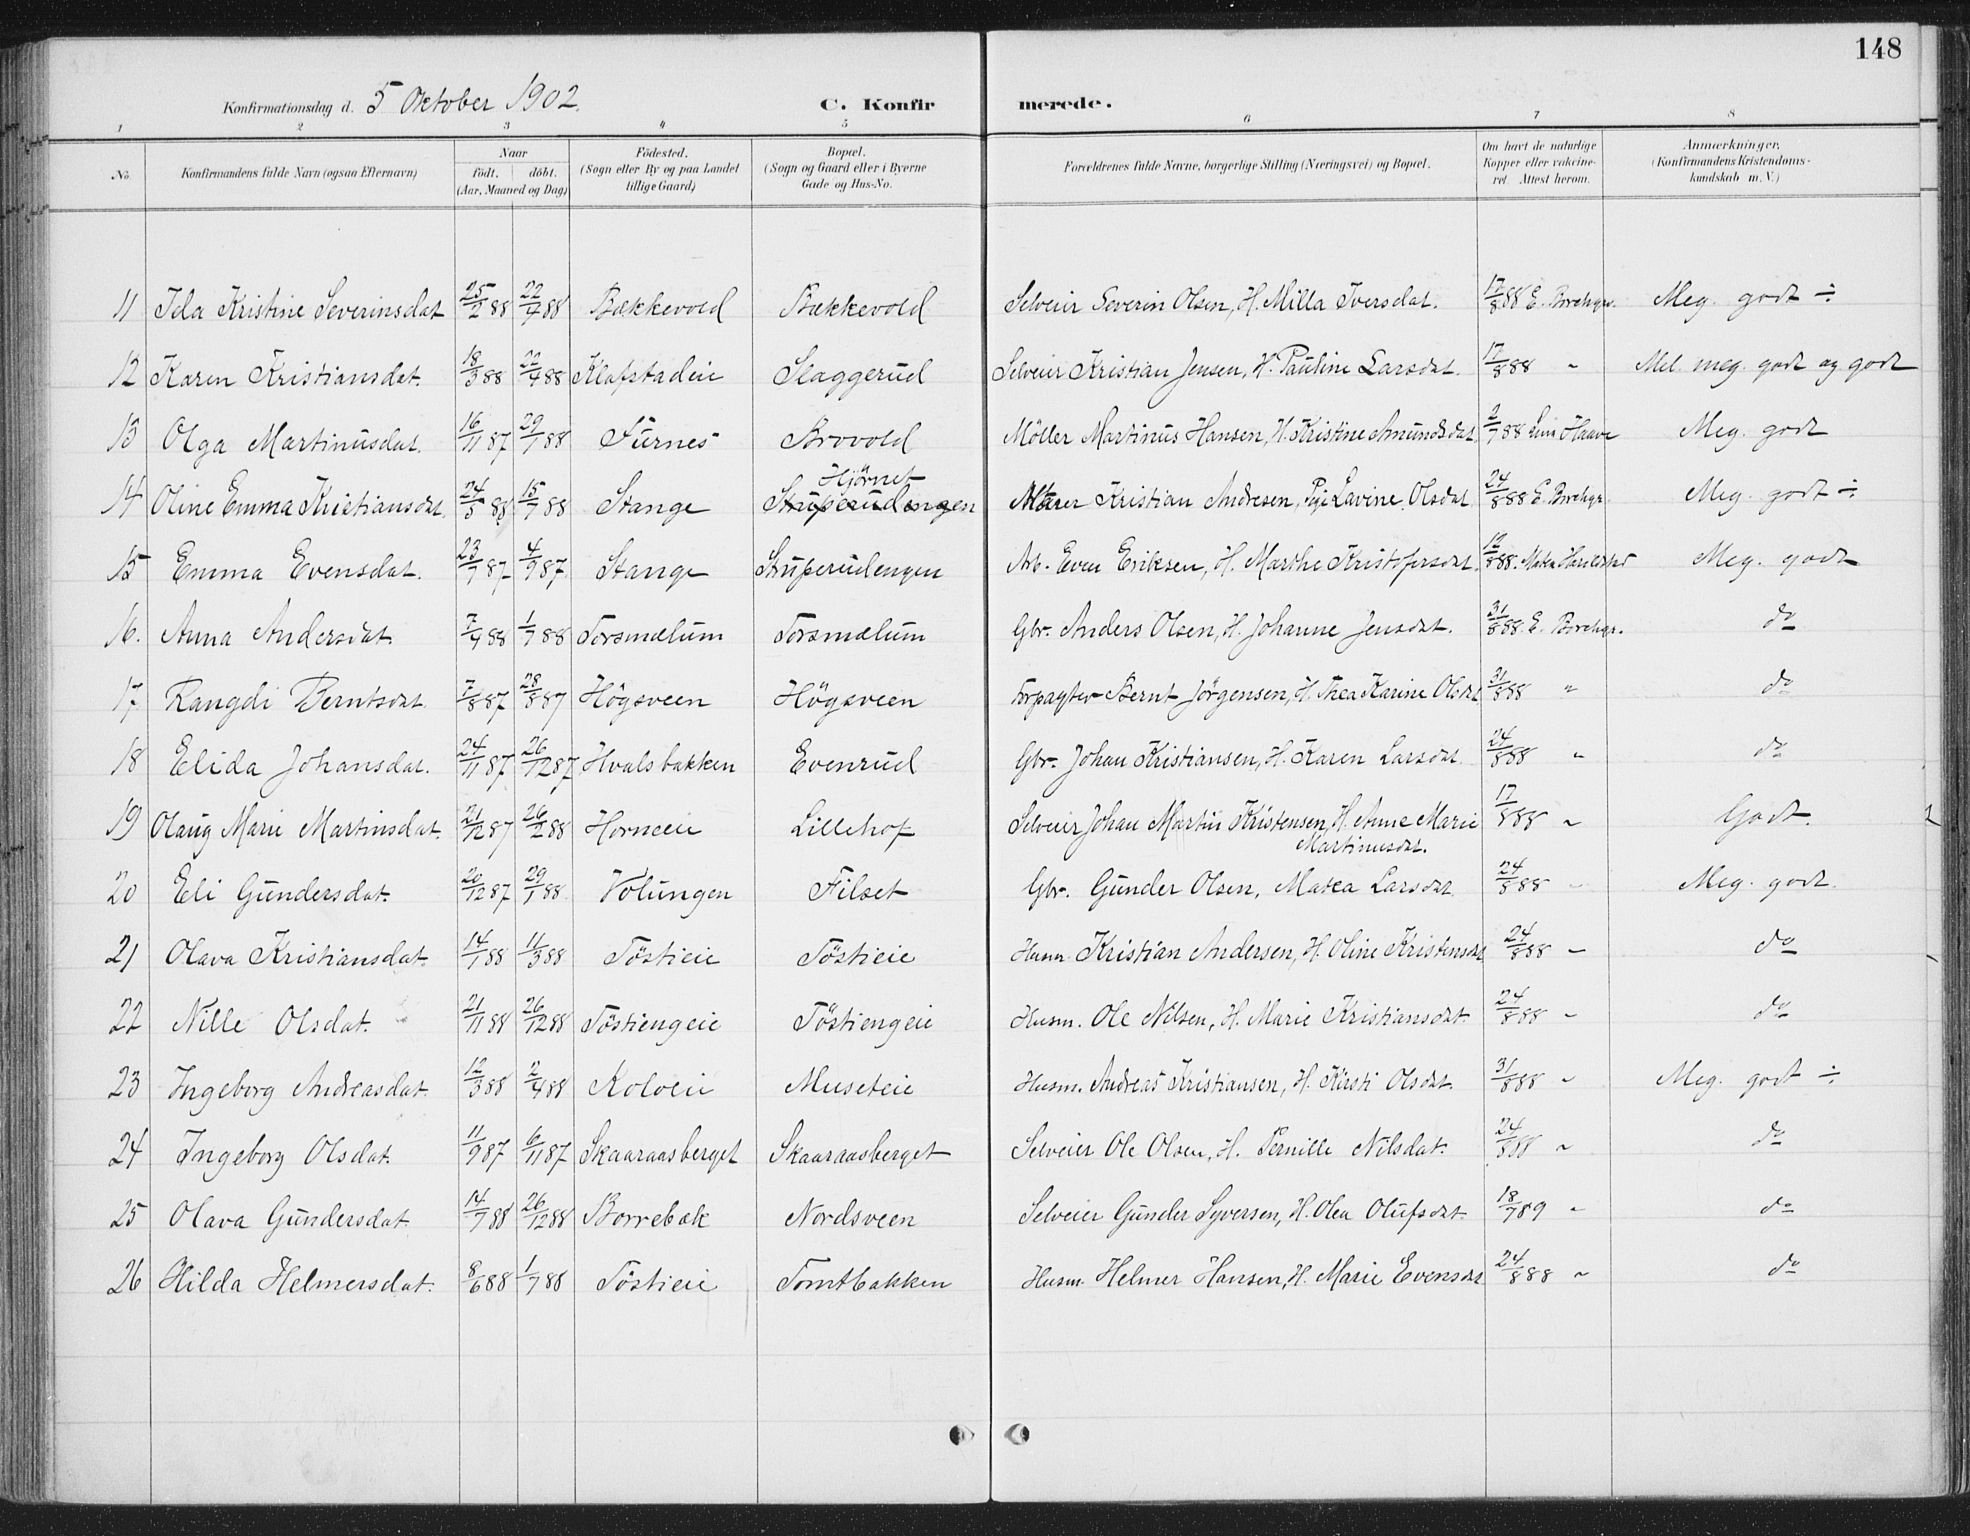 148
Konfirmationsdag d. 5 Oktober 1902.
C. Konfirmerede.
1 2 3 4 5 6 7 8
No. Konfirmandens fulde Navn (ogsaa Efternavn) Naar födt. döbt. (Aar, Maaned og Dag) Födested. (Sogn eller By og paa Landet tillige Gaard) Bopæl. (Sogn og Gaard eller i Byerne Gade og Hus-No. Forældrenes fulde Navne, borgerlige Stilling (Næringsvei) og Bopæl. Om havt de naturlige Kopper eller vakcineret. Attest herom. Anmærkninger. (Konfirmandens Kristendomskundskab m. V.)
11 Ida Kristine Severinsdat 25/2 88 22/4 88 Bækkevold Bækkevold Selveier Severin Olsen, H. Milla Iversdat. 17/8 88 E. Borchgr. Meg. godt ÷
12 Karen Kristiansdat. 18/3 88 22/4 88 Klafstadeie Slaggerud Selveier Kristian Jensen, H. Pauline Larsdat. 17/8 88 " Mel. meg. godt og godt
13 Olga Martinusdat. 16/11 87 29/1 88 Furnes Brovold Möller Martinus Hansen, H. Kristine Amundsdat 2/7 88 Haave Meg. godt
14 Oline Emma Kristiansdat. 24/5 88 15/7 88 Stange Hjörnet Stuperudengen Murer Kristian Andresen, Pige Lavine Olsdat 24/8 88 E. Borchgr. Meg. godt ÷
15 Emma Evensdat. 23/7 87 4/9 87. Stange Stuperudengen Arb. Even Eriksen, H. Marthe Kristofersdat. 12/8 88. Meg. godt
16. Anna Andersdat. 7/4 88 1/7 88 Torsmælum Torsmælum Gbr. Anders Olsen, H. Johanne Jensdat. 31/8 88. E. Borchgr. do
17 Rangdi Berntsdat. 7/8 87 28/8 87 Högsveen Högsveen Forpagter Bernt Jörgensen, H. Thea Karine Olsdat 31/8 88 " do
18 Elida Johansdat. 24/11 87 26/12 87 Hvalsbakken Evenrud Gbr. Johan Kristiansen, H. Karen Larsdat. 24/8 88 " do
19 Olaug Marie Martinsdat. 21/12 87 26/2 88 Horneeie Lillehof Selveier Johan Martin Kristensen, H. Anne Marie Martinusdat. 17/8 88 " Godt.
20 Eli Gundersdat. 20/12 87 29/1 88. Volungen Filset Gbr. Gunder Olsen, Matea Larsdat 24/8 88 " Meg. godt.
21 Olava Kristiansdat. 14/1 88 11/3 88 Töstieie Töstieie Husm. Kristian Andersen, H. Oline Kristensdat 24/8 88 " do
22 Nille Olsdat. 21/11 88 26/12 88 Töstiengeie Töstiengeie Husm. Ole Nilsen, H. Marie Kristiansdat. 24/8 88 " do
23 Ingeborg Andreasdat. 12/3 88 2/4 88 Koloeie Museteie Husm. Andreas Kristiansen, H. Kirsti Olsdat. 31/8 88 " Meg. godt ÷
24 Ingeborg Olsdat. 11/9 87 6/11 87 Skaaraasberget Skaaraasberget Selveier Ole Olsen, H. Pernille Nilsdat. 24/8 88 " do
25 Olava Gundersdat. 14/7 88 26/12 88 Borrebæk Nordsveen Selveier Gunder Syversen, H. Olea Olufsdat. 18/7 89 " do
26 Hilda Helmersdat. 8/6 88 1/7 88 Töstieie Tomtbakken Husm. Helmer Hansen, H. Marie Evensdat 24/8 88 " do